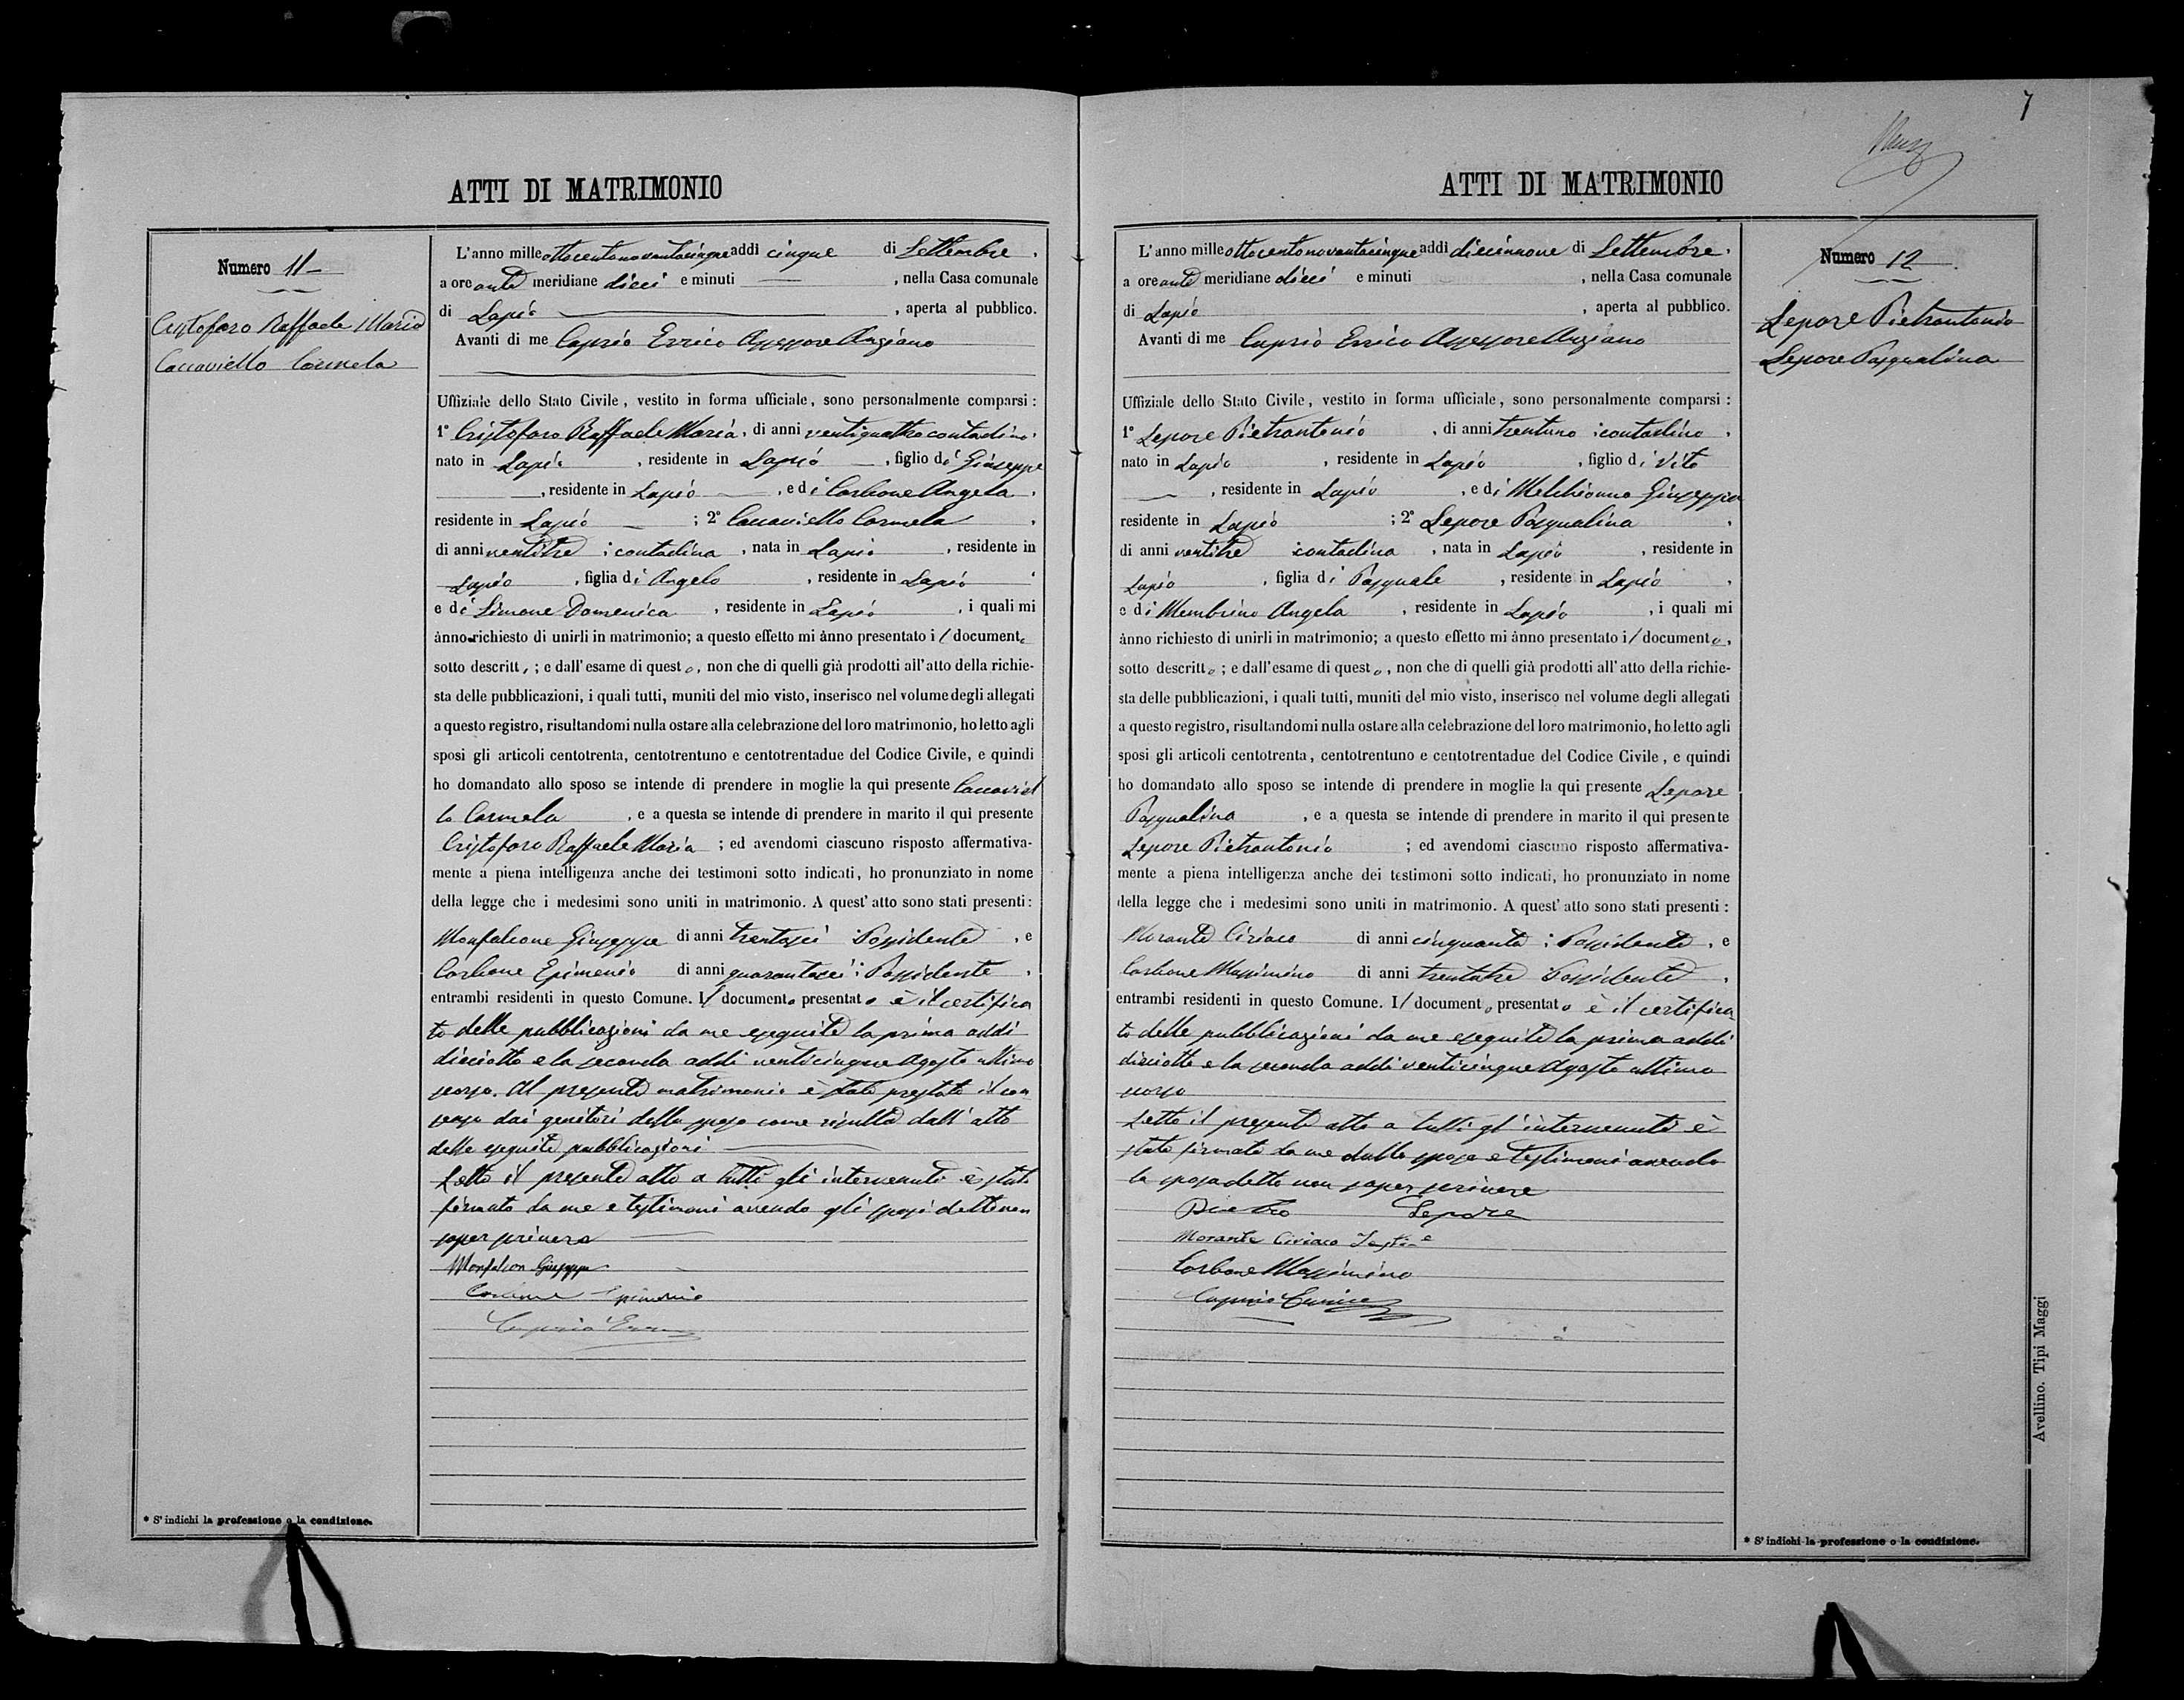 ATTI DI MATRIMONIO
Numero 11
Cristofaro Raffaele Maria
Caccaviello Carmela
L'anno mille ottocentonovantacinque addì cinque di Settembre,
a ore ante meridiane dieci e minuti , nella Casa comunale
di Lapio , aperta al pubblico.
Avanti di me Caprio Errico Assessore Anziano
Uffiziale dello Stato Civile, vestito in forma ufficiale, sono personalmente comparsi:
1° Cristofaro Raffaele Maria, di anni ventiquattro contadino,
nato in Lapio, residente in Lapio, figlio di Giuseppe
, residente in Lapio, e di Carbone Angela,
residente in Lapio ; 2° Caccaviello Carmela,
di anni ventitre contadina, nata in Lapio, residente in
Lapio, figlia di Angelo, residente in Lapio,
e di Simone Domenica, residente in Lapio, i quali mi
ànno richiesto di unirli in matrimonio; a questo effetto mi ànno presentato il documento
sotto descritt ; e dall'esame di questo, non che di quelli già prodotti all'atto della richie-
sta delle pubblicazioni, i quali tutti, muniti del mio visto, inserisco nel volume degli allegati
a questo registro, risultandomi nulla ostare alla celebrazione del loro matrimonio, ho letto agli
sposi gli articoli centotrenta, centotrentuno e centotrentadue del Codice Civile, e quindi
ho domandato allo sposo se intende di prendere in moglie la qui presente Caccaviel
lo Carmela, e a questa se intende di prendere in marito il qui presente
Cristofaro Raffaele Maria; ed avendomi ciascuno risposto affermativa-
mente a piena intelligenza anche dei testimoni sotto indicati, ho pronunziato in nome
della legge che i medesimi sono uniti in matrimonio. A quest'atto sono stati presenti:
Monfalcone Giuseppe di anni trentasei Possidente, e
Carbone Epimenio di anni quarantasei Possidente,
entrambi residenti in questo Comune. Il documento presentato è il certifica
to delle pubblicazioni da me eseguite la prima addì
diciotto e la seconda addì venticinque Agosto ultimo
scorso. Al presente matrimonio è stato prestato il con
senso dai genitori della sposa come risulta dall'atto
delle eseguite pubblicazioni
Letto il presente atto a tutti gli intervenuti è stato
firmato da me e testimoni avendo gli sposi detto non
saper scrivere
Monfalcon Giuseppe
Carbone Epimenio
Caprio Errico
* S'indichi la professione o la condizione.
7
ATTI DI MATRIMONIO
Numero 12
Lepore Pietrantonio
Lepore Pasqualina
L'anno mille ottocentonovantacinque addì diecinnove di Settembre,
a ore ante meridiane dieci e minuti , nella Casa comunale
di Lapio , aperta al pubblico.
Avanti di me Caprio Errico Assessore Anziano
Uffiziale dello Stato Civile, vestito in forma ufficiale, sono personalmente comparsi:
1° Lepore Pietrantonio, di anni trentuno contadino,
nato in Lapio, residente in Lapio, figlio di Vito
, residente in Lapio, e di Melchionna Giuseppa
residente in Lapio ; 2° Lepore Pasqualina,
di anni ventitre contadina, nata in Lapio, residente in
Lapio, figlia di Pasquale, residente in Lapio,
e di Membrino Angela, residente in Lapio, i quali mi
ànno richiesto di unirli in matrimonio; a questo effetto mi ànno presentato il documento,
sotto descritto; e dall'esame di questo, non che di quelli già prodotti all'atto della richie-
sta delle pubblicazioni, i quali tutti, muniti del mio visto, inserisco nel volume degli allegati
a questo registro, risultandomi nulla ostare alla celebrazione del loro matrimonio, ho letto agli
sposi gli articoli centotrenta, centotrentuno e centotrentadue del Codice Civile, e quindi
ho domandato allo sposo se intende di prendere in moglie la qui presente Lepore
Pasqualina, e a questa se intende di prendere in marito il qui presente
Lepore Pietrantonio ; ed avendomi ciascuno risposto affermativa-
mente a piena intelligenza anche dei testimoni sotto indicati, ho pronunziato in nome
della legge che i medesimi sono uniti in matrimonio. A quest'atto sono stati presenti:
Morante Ciriaco di anni cinquanta Possidente, e
Carbone Massimino di anni trentatre Possidente,
entrambi residenti in questo Comune. Il documento presentato è il certifica
to delle pubblicazioni da me eseguite la prima addì
diciotto e la seconda addì venticinque Agosto ultimo
scorso
Letto il presente atto a tutti gl'intervenuti è
stato firmato da me dallo sposo e testimoni avendo
la sposa detto non saper scrivere
Pietro Lepore
Morante Ciriaco Teste
Carbone Massimino
Caprio Errico
* S'indichi la professione o la condizione.
Avellino. Tipi Maggi